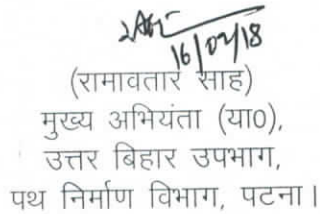 16/02/18
(रामावतार साह)
मुख्य अभियंता (या0),
उत्तर बिहार उपभाग,
पथ निर्माण विभाग, पटना।